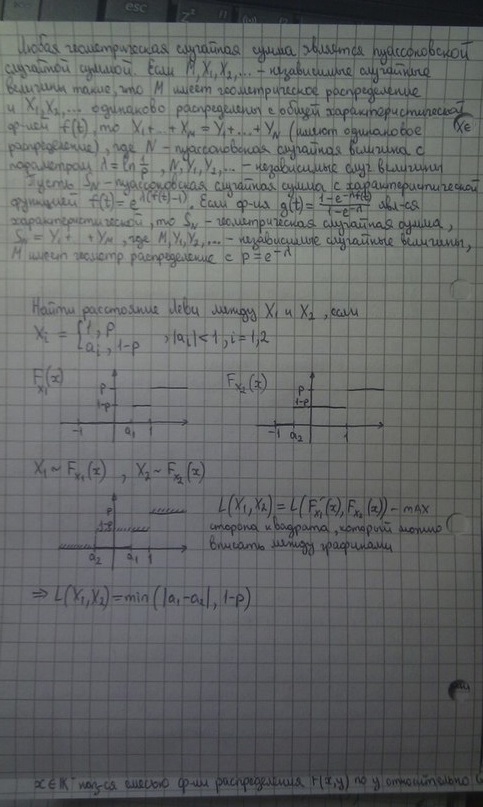 Любая геометрическая случайная сумма является пуассоновской
случайной суммой. Если M, X₁, X₂, ... – независимые случайные
величины такие, что M имеет геометрическое распределение
и X₁, X₂, ... одинаково распределены с общей характеристической
ф-ией f(t), то X₁+...+X_M = Y₁+...+Y_N (имеют одинаковое
распределение), где N – пуассоновская случайная величина с
параметром λ = ln 1/p, N, Y₁, Y₂, ... – независимые случ величины
Пусть S_N – пуассоновская случайная сумма с характеристической
функцией f(t) = e^{λ(f(t)-1)}. Если ф-ия g(t) = (1-e^{-λf(t)})/(1-e^{-λ}) явл-ся
характеристической, то S_N – геометрическая случайная сумма,
S_N = Y₁+ ..+Y_M, где M, Y₁, Y₂, ... – независимые случайные величины,
M имеет геометр распределение с p = e^{-λ}
Найти расстояние Леви между X₁ и X₂, если
X_i = { 1, p
a_i, 1-p , |a_i| < 1, i = 1,2
F_{X₁}(x) F_{X₂}(x)
p p
1-p 1-p
-1 a₁ 1 -1 a₂ 1
X₁ ~ F_{X₁}(x) , X₂ ~ F_{X₂}(x)
L(X₁, X₂) = L(F_{X₁}(x), F_{X₂}(x)) – max
p
сторона квадрата, который можно
1-p
вписать между графиками
a₂ a₁ 1
⇒ L(X₁, X₂) = min(|a₁-a₂|, 1-p)
наз-ся смесью ф-ии распределения F(x,y) по y относительно